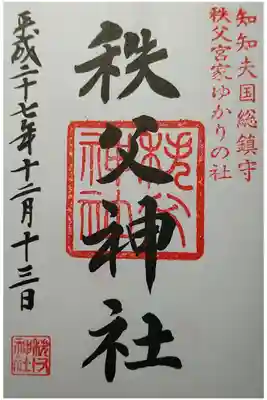 知知夫国総鎮守
秩父宮家ゆかりの社
秩父神社
平成二十七年十二月十三日
秩父
神社